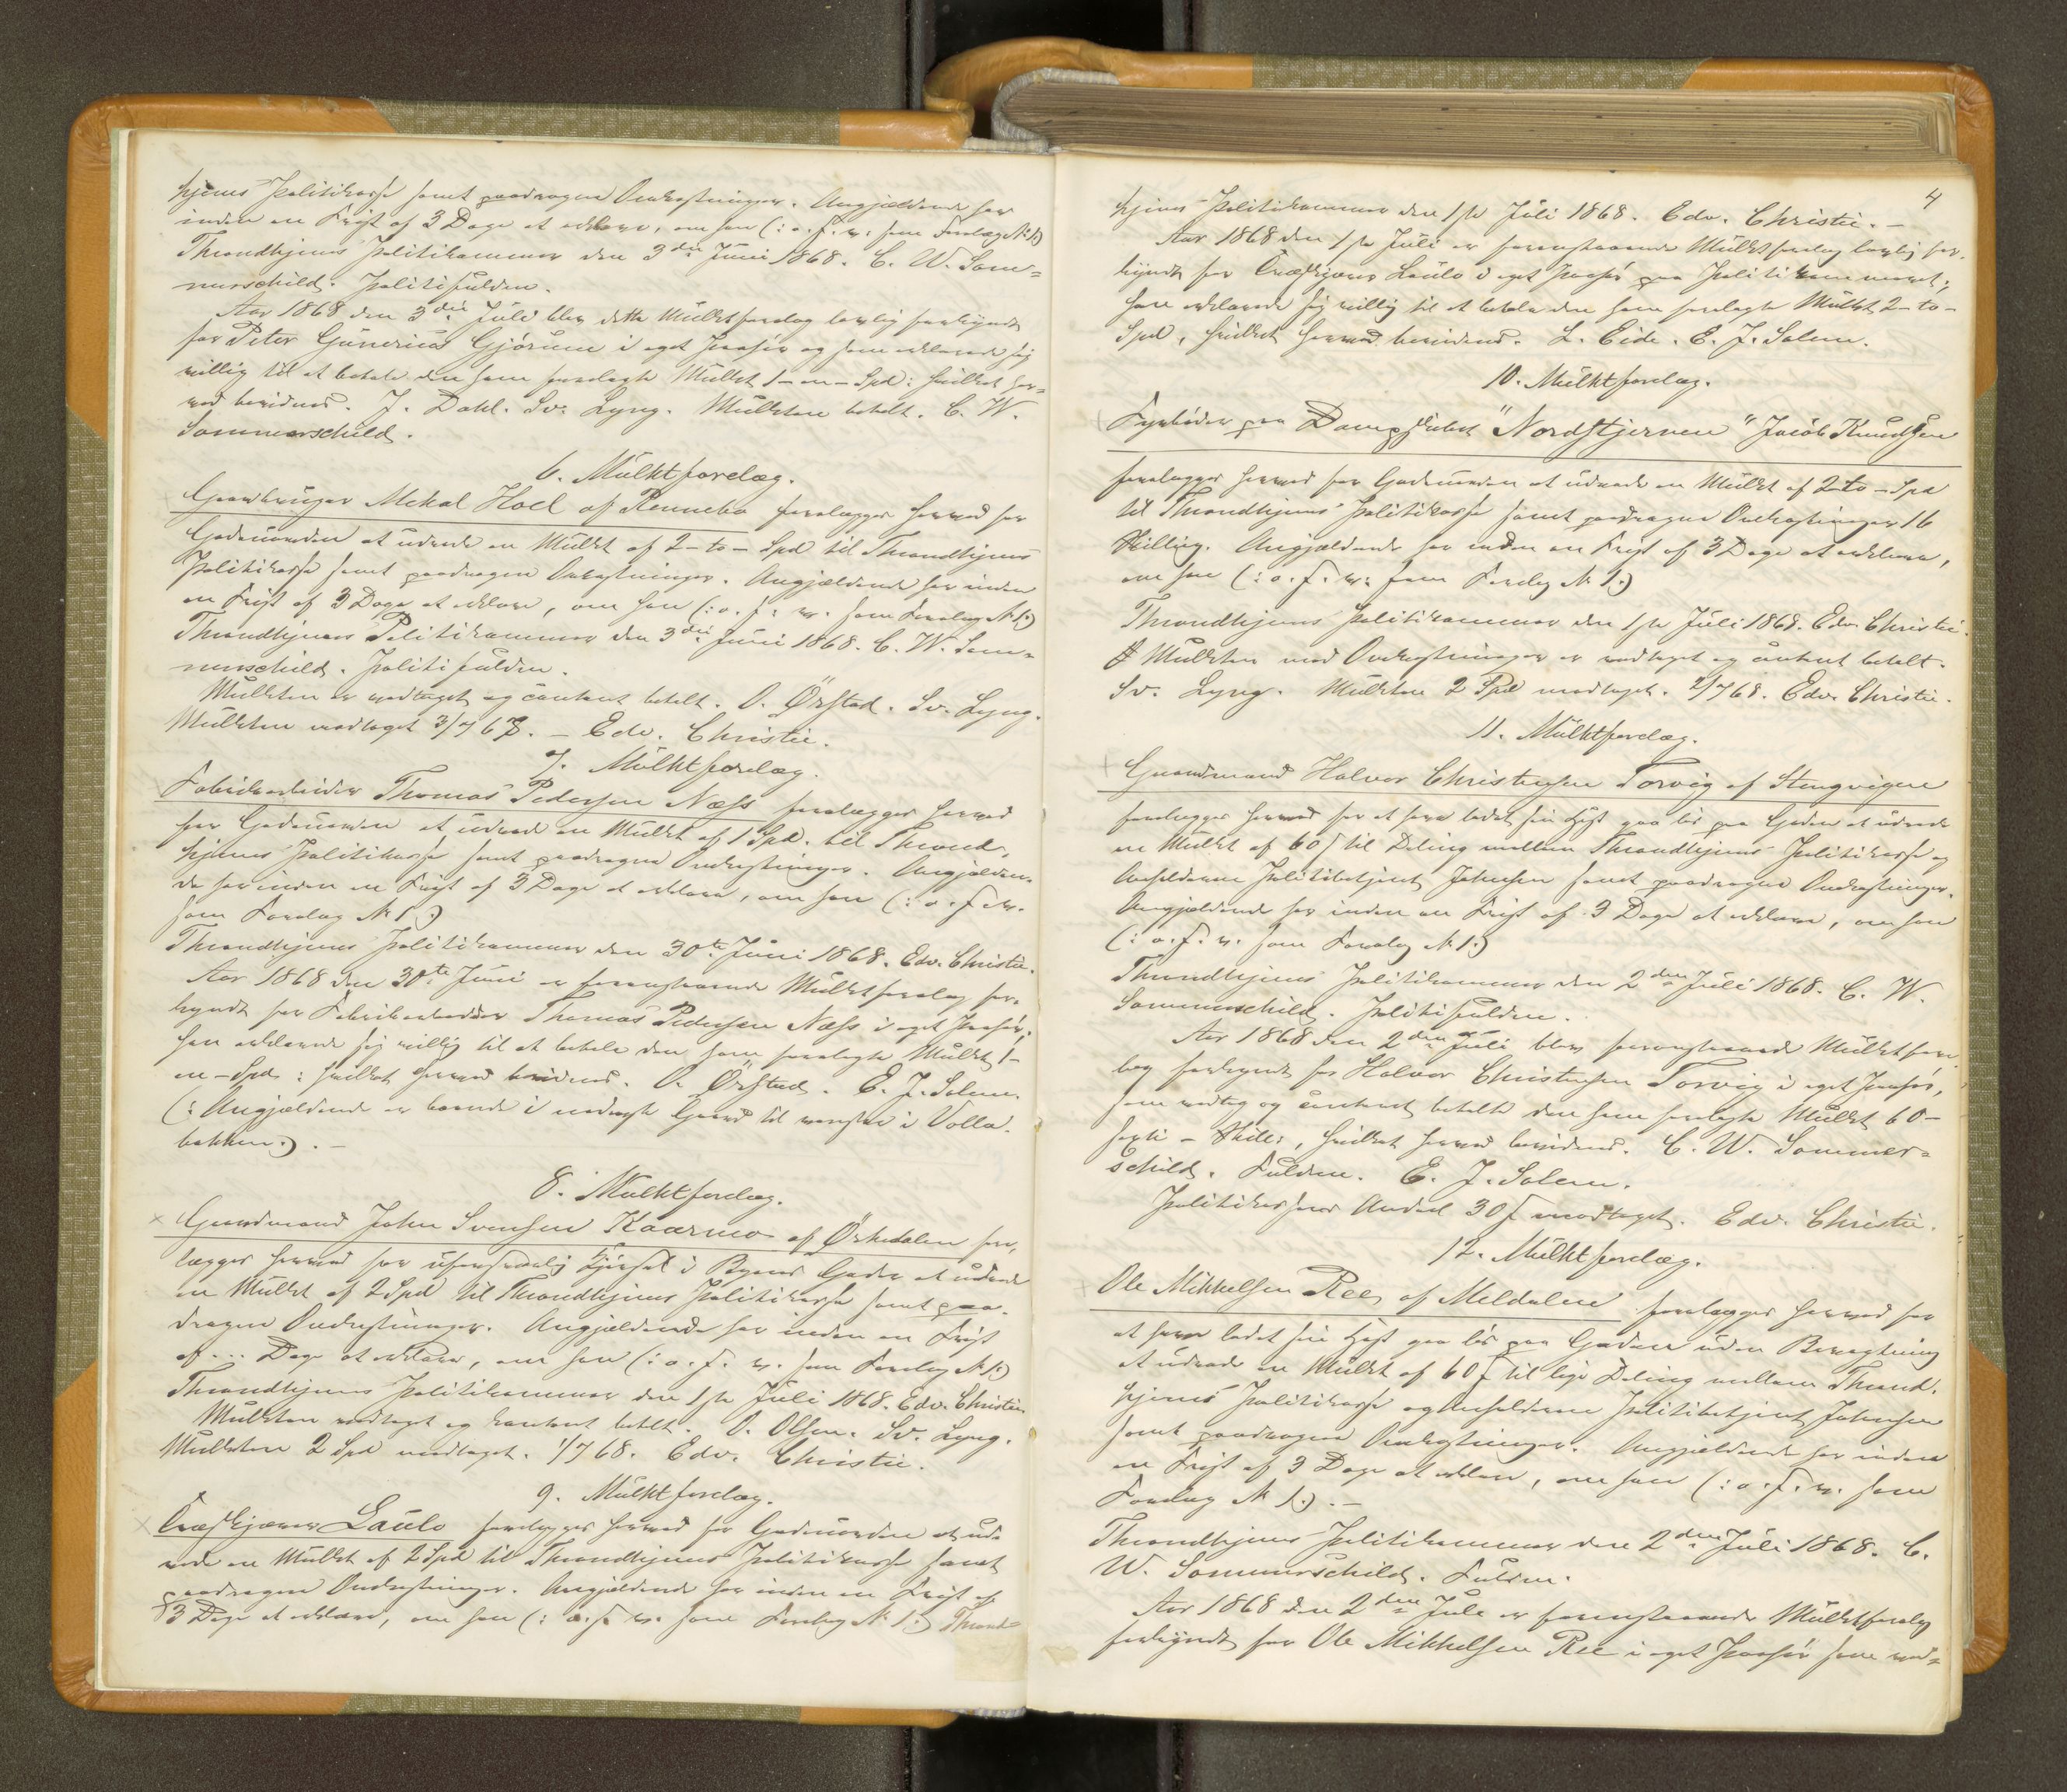 hjems Politikasse samt paadragne Omkostninger. Angjældende har
inden en Frist af 3 Dage at erklære, om han (: o. s. v. som Forelæg No 1:)
Throndhjems Politikammer den 3die Juni 1868. C. W. Som=
merschild. Politifuldm.
Aar 1868 den 3die Juli blev dette Mulktforelæg lovlig forkyndt
for Peter Gunerius Gjørum i eget Paahør og han erklærede sig
villig til at betale den ham forelagte Mulkt 1 - en - Spd: hvilket her=
ved bevidnes. J. Dahl. Sv. Lyng. Mulkten betalt. C. W.
Sommerschild.
6. Mulktforelæg.
Gaardbruger Mekal Hoel af Rennebo forelægges herved for
Gadeuorden at udrede en Mulkt af 2 - to - Spd til Throndhjems
Politikasse samt paadragne Omkostninger. Angjældende har inden
en Frist af 3 Dage at erklære, om han (: o. s. v. som Forelæg No 1:)
Throndhjems Politikammer den 3die Juni 1868. C. W. Som=
merschild. Politifuldm.
Mulkten er vedtaget og contant betalt. O. Ørstad. Sv. Lyng.
Mulkten modtaget 3/7 68. - Edv. Christie.
7. Mulktforelæg.
Fabrikarbeider Thomas Pedersen Næss forelægges herved
for Gadeuorden at udrede en Mulkt af 1 Spd. til Thrond=
hjems Politikasse samt paadragne Omkostninger. Angjælden=
de har inden en Frist af 3 Dage at erklære, om han (: o. s. v.
som Forelæg No 1:)
Throndhjems Politikammer den 30te Juni 1868. Edv. Christie.
Aar 1868 den 30te Juni er foranstaaende Mulktforelæg for=
kyndt for Fabrikarbeider Thomas Pedersen Næss i eget Paahør;
han erklærede sig villig til at betale den ham forelagte Mulkt 1 -
en - Spd: hvilket herved bevidnes. O. Ørstad. E. J. Solem.
(: Angjældende er boende i nederste Gaard til venstre i Volla=
bakken:). -
8. Mulktforelæg.
Gaardmand John Svensen Kaarmo af Ørkedalen fore=
lægges herved for uforsvarlig Kjørsel i Byens Gader at udrede
en Mulkt af 2 Spd til Throndhjems Politikasse samt paa=
dragne Omkostninger. Angjældende har inden en Frist
af ... Dage at erklære, om han (: o. s. v. som Forelæg No 1:)
Throndhjems Politikammer den 1ste Juli 1868. Edv. Christie
Mulkten vedtaget og kontant betalt. O. Olsen. Sv. Lyng.
Mulkten 2 Spd modtaget. 1/7 68. Edv. Christie.
9. Mulktforelæg.
Træskjærer Laulo forelægges herved for Gadeuorden at ud=
rede en Mulkt af 2 Spd til Throndhjems Politikasse samt
paadragne Omkostninger. Angjældende har inden en Frist af
3 Dage at erklære, om han (: o. s. v. som Forelæg No 1:) Thrond=
4
hjems Politikammer den 1ste Juli 1868. Edv. Christie. -
Aar 1868 den 1ste Juli er foranstaaende Mulktforelæg lovlig for=
kyndt for Træskjærer Laulo i eget Paahør paa Politikammeret;
han erklærede sig villig til at betale den ham forelagte Mulkt 2 - to -
Spd, hvilket herved bevidnes. L. Eide. E. J. Solem.
10. Mulktforelæg.
Fyrbøder paa Dampskibet "Nordstjernen" Jacob Knudsen
forelægges herved for Gadeuorden at udrede en Mulkt af 2 - to - Spd
til Throndhjems Politikasse samt paadragne Omkostninger 16
Skilling. Angjældende har inden en Frist af 3 Dage at erklære,
om han (: o. s. v. som Forelæg No 1:)
Throndhjems Politikammer den 1ste Juli 1868. Edv. Christie.
Mulkten med Omkostninger er vedtaget og contant betalt.
Sv. Lyng. Mulkten 2 Spd modtaget. 2/7 68. Edv. Christie.
11. Mulktforelæg.
Gaardmand Halvor Christensen Torvig af Stangvigen
forelægges herved for at have ladet sin Hest gaa løs paa Gaden at udrede
en Mulkt af 60 s til Deling mellem Throndhjems Politikasse og
Anholderen Politibetjent Johnsen samt paadragne Omkostninger.
Angjældende har inden en Frist af 3 Dage at erklære, om han
(: o. s. v. som Forelæg No 1:)
Throndhjems Politikammer den 2den Juli 1868. C. W.
Sommerschild. Politifuldm.
Aar 1868 den 2den Juli blev foranstaaende Mulktfore=
læg forkyndt for Halvor Christensen Torvig i eget Paahør,
som vedtog og contant betalte den ham forelagte Mulkt 60 -
sexti - Skill:, hvilket herved bevidnes. C. W. Sommer=
schild. Fuldm. E. J. Solem.
Politikassens Andeel 30 s modtaget. Edv. Christie.
12. Mulktforelæg.
Ole Mikkelsen Ree af Meldalen forelægges herved for
at have ladet sin Hest gaa løs paa Gaden uden Bevogtning
at udrede en Mulkt af 60 s til lige Deling mellem Thrond=
hjems Politikasse og Anholderen Politibetjent Johnsen
samt paadragne Omkostninger. Angjældende har inden
en Frist af 3 Dage at erklære, om han (: o. s. v. som
Forelæg No 1:). -
Throndhjems Politikammer den 2den Juli 1868. C.
W. Sommerschild. Fuldm.
Aar 1868 den 2den Juli er foranstaaende Mulktforelæg
forkyndt for Ole Mikkelsen Ree i eget Paahør som ved=